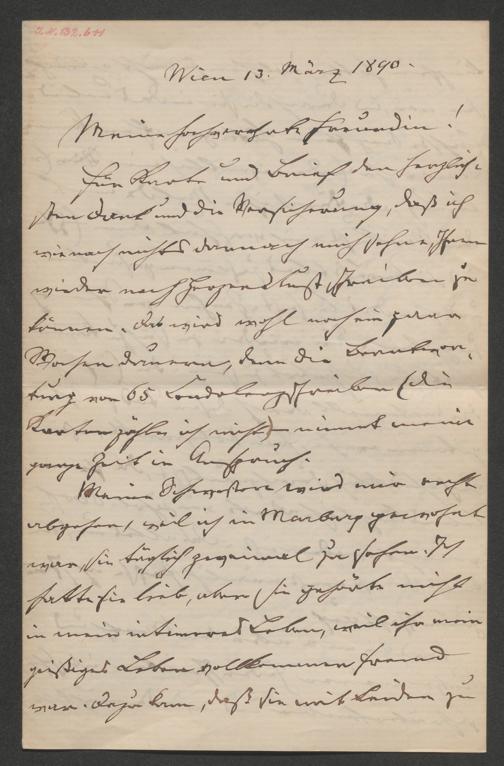 I.N. 132.644
Wien 13. März 1890.
Meine hochverehrte Freundin!
Für Karte und Brief den herzlich-
sten Dank und die Versicherung, daß ich
wie nach nichts darnach mich sehne, Ihnen
wieder nach Herzenslust schreiben zu
können. Das wird wohl noch ein paar
Wochen dauern, denn die Beantwor-
tung von 65 Condolenzschreiben (die
Karten zähle ich nicht) nimmt meine
ganze Zeit in Anspruch.
Meine Schwester wird mir recht
abgehen, weil ich in Marburg gewohnt
war, sie täglich zweimal zu sehen. Ich
hatte sie lieb, aber sie gehörte nicht
in mein intimeres Leben, weil ihr mein
geistiges Leben vollkommen fremd
war. Dazu kam, daß sie mit Leiden zu